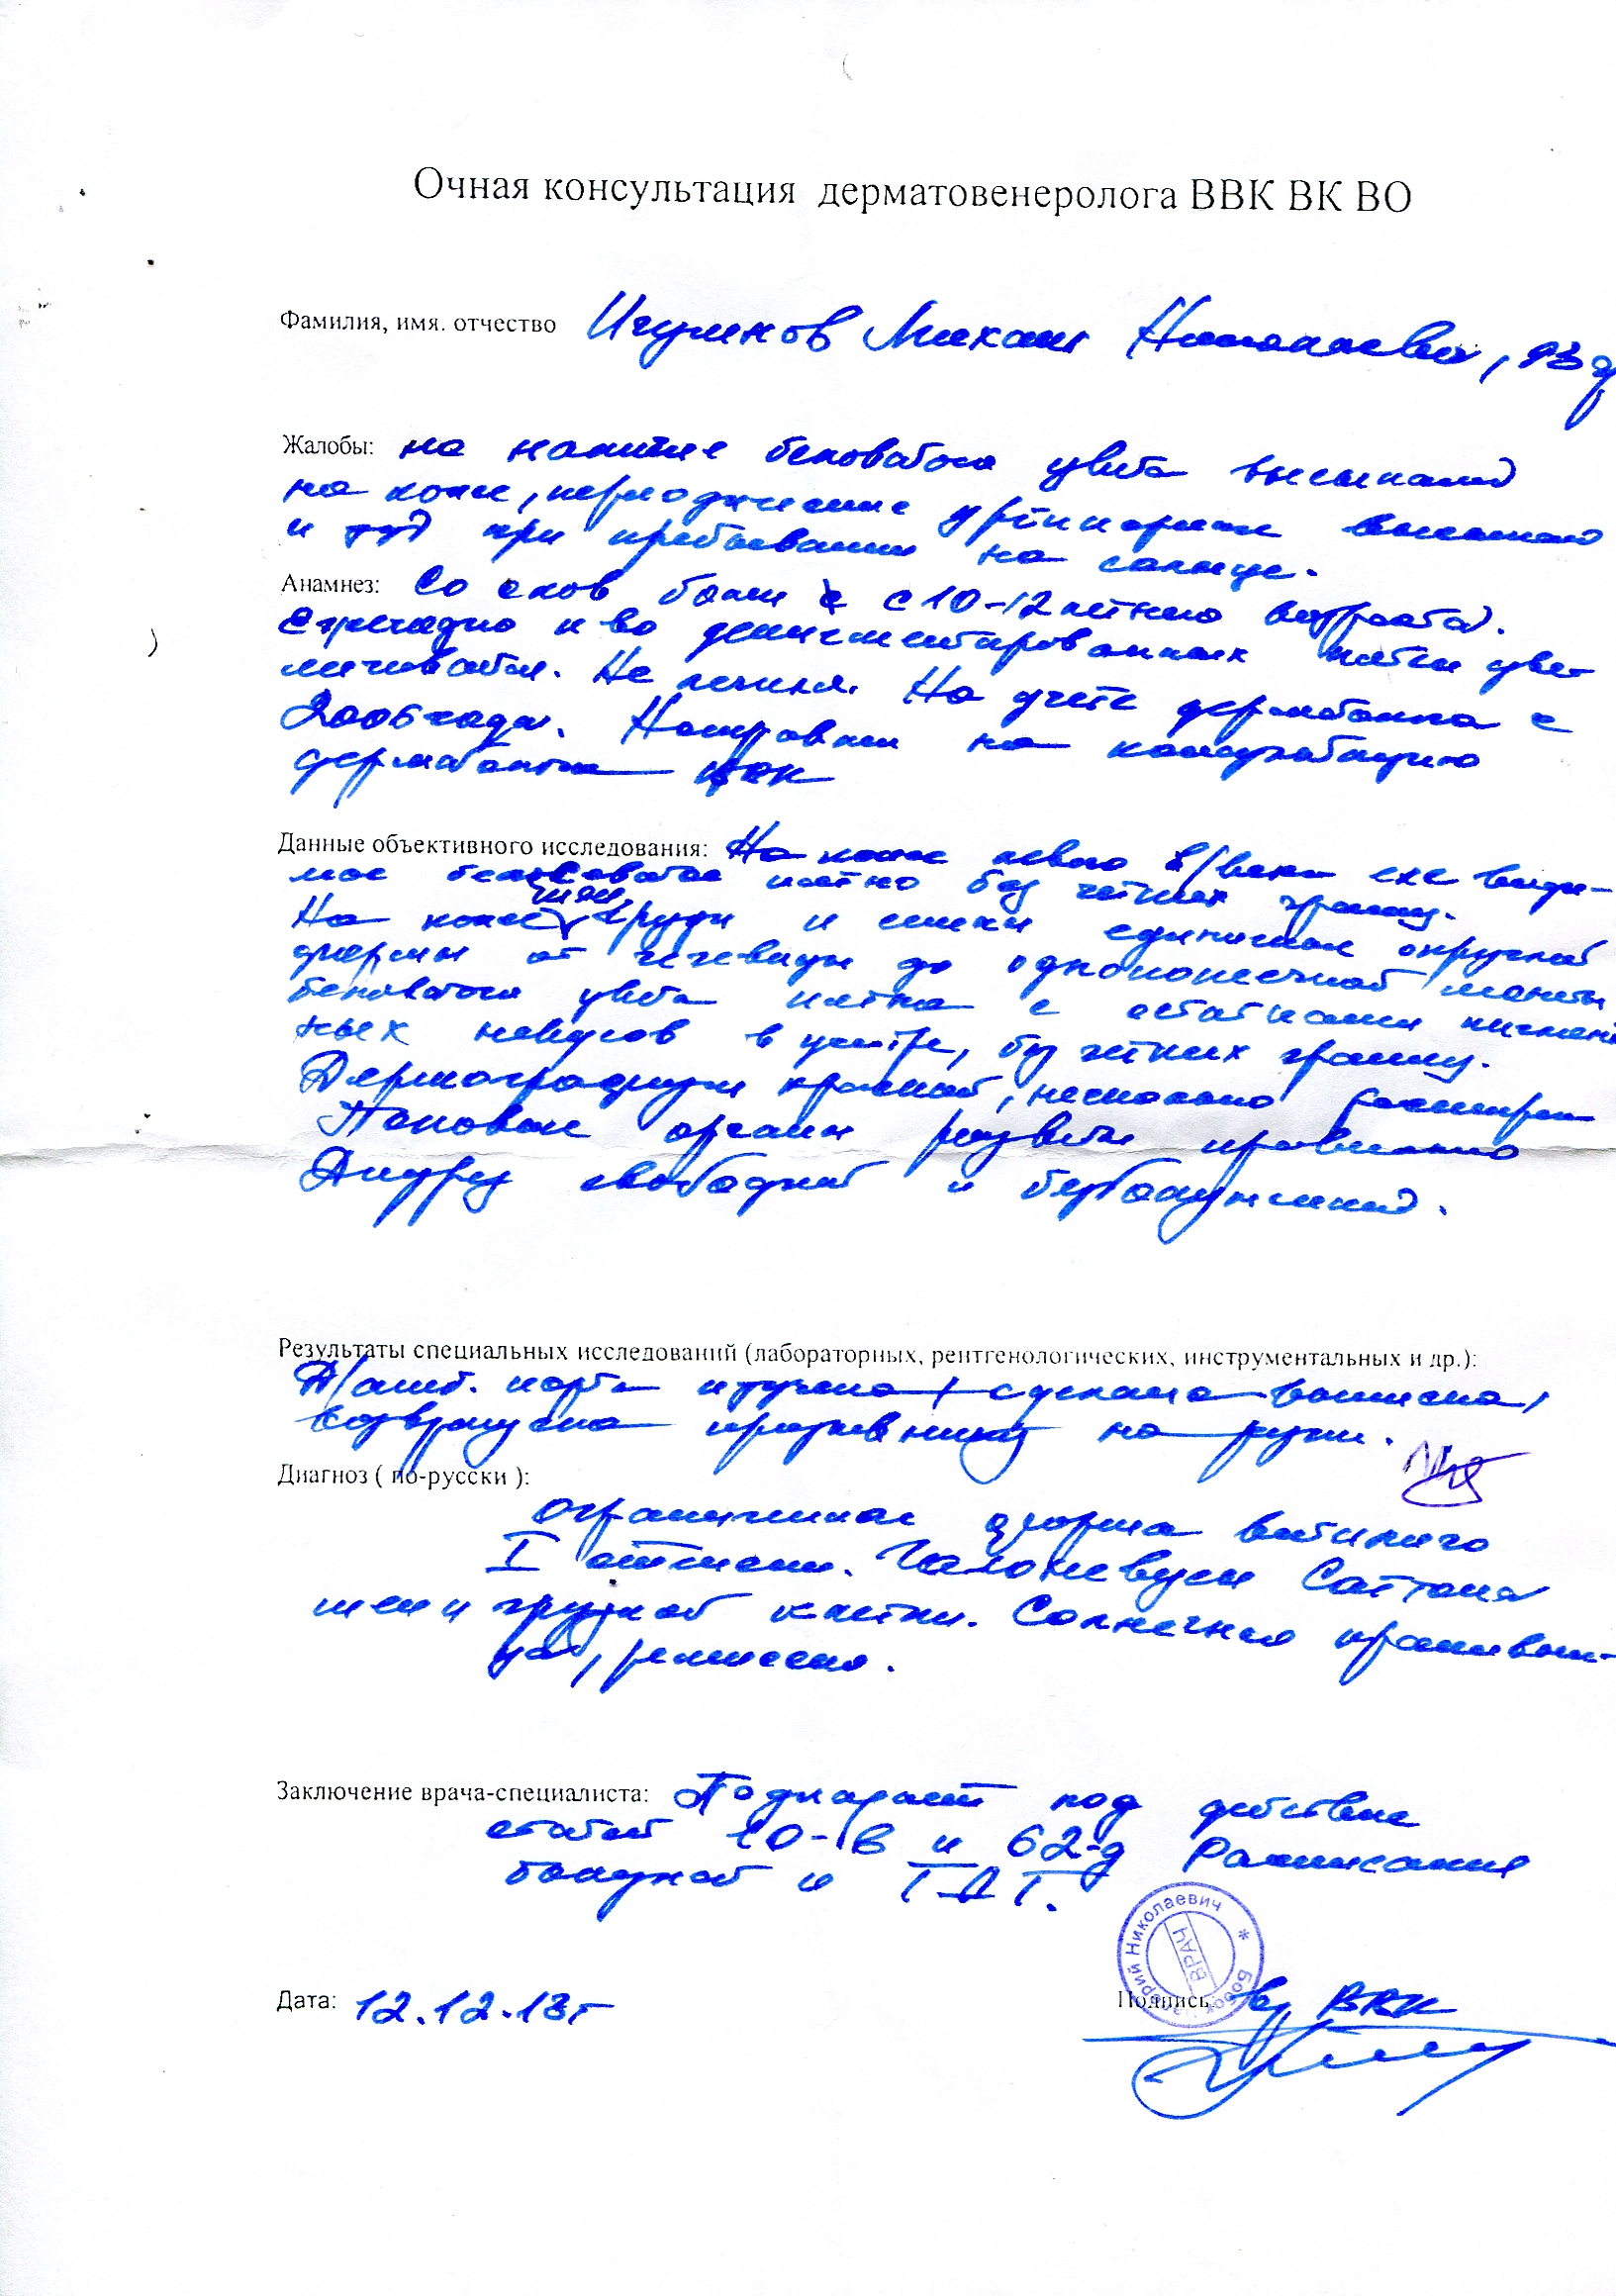 Очная консультация дерматовенеролога ВВК ВК ВО
Фамилия, имя. отчество Игумнов Михаил Николаевич, 93 г
Жалобы: на наличие беловатого цвета высыпаний
на коже, периодические уртикарные высыпания
и зуд при пребывании на солнце.
Анамнез: Со слов болен с 10-12 летнего возраста.
Ежегодно к-во депигментированных пятен уве-
личивается. Не лечился. На учете дерматолога с
2006 года. Направлен на консультацию
дерматолога ВВК
Данные объективного исследования: На коже левого в/века еле види-
мое беловатое пятно без четких границ.
шеи,
На коже груди и спины единичные округлой
формы от чечевицы до однокопеечной монеты
беловатого цвета пятна с остатками пигмент
ных невусов в центре, без четких границ.
Дермографизм красный, несколько
Половые органы развиты правильно
Диурез свободный и безболезненный.
Результаты специальных исследований (лабораторных, рентгенологических, инструментальных и др.):
А/амб. карта изучена, сделана выписка,
возвращена призывнику на руки.
Диагноз ( по-русски ):
Ограниченная форма витилиго
I степени. Галоневусы Сеттона
шеи и грудной клетки. Солнечная крапивни-
ца, ремиссия.
Заключение врача-специалиста: Подпадает под действие
статей 10-в и 62-д Расписания
болезней и ТДТ.
Николаевич * Бобок
ВРАЧ
Дата: 12.12.13г
Подпись: ВВК